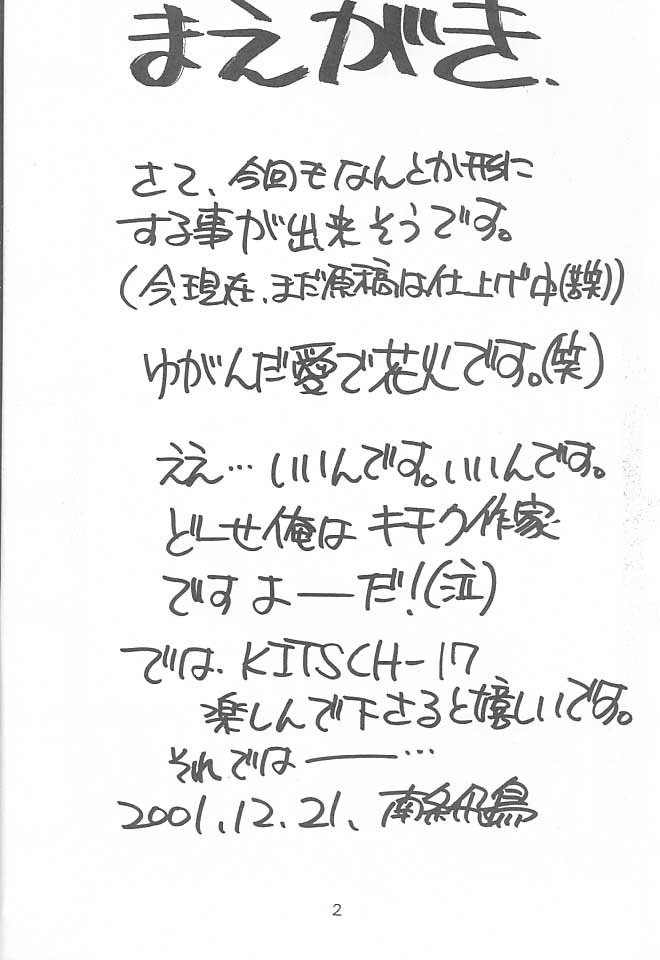 まえがき.
さて、今回もなんとか形に
する事が出来そうです。
(今、現在、まだ原稿は仕上げ中(苦笑))
ゆがんだ愛で花火です。(笑)
ええ…いいんです。いいんです。
どーせ俺はキモク作家
ですよーーだ!(泣)
では、KITSCH-17
楽しんで下さると嬉しいです。
それでは――…
2001.12.21、南条飛鳥
2